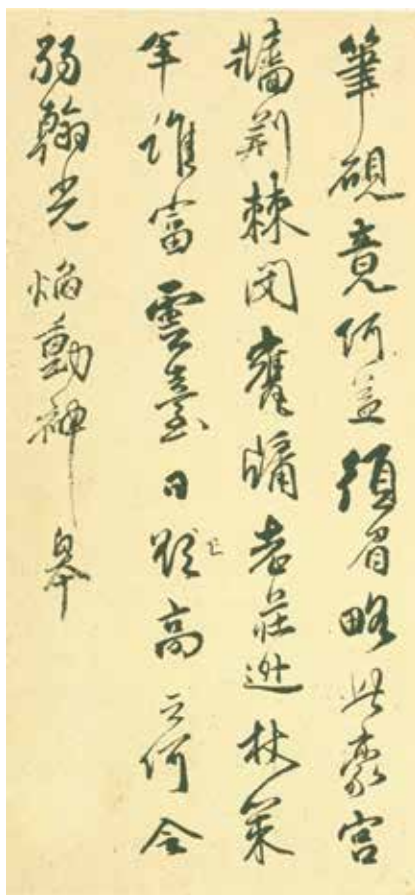 筆硯竟何益須眉略此豪宮
牆荊棘閟甕牖老莊逃杖策
年誰富雲臺日高云何令
弱翰光焰動神皋